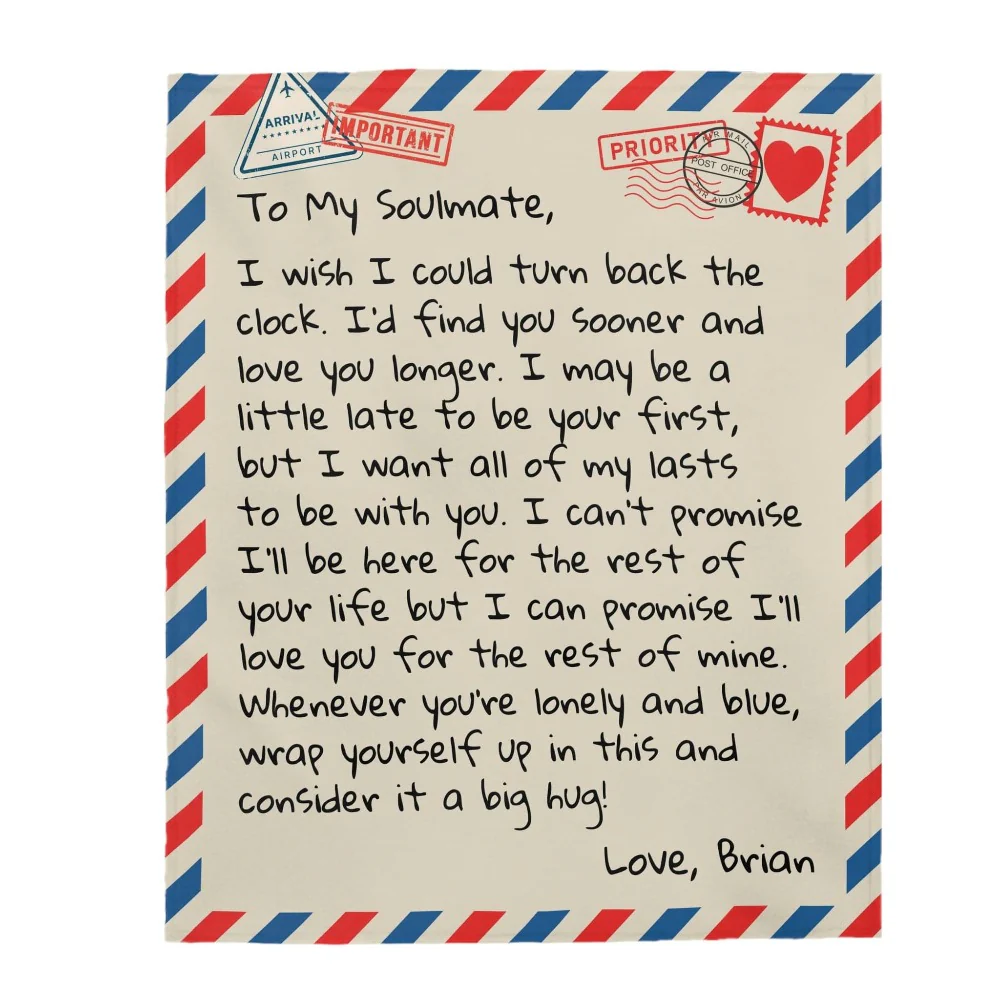 ARRIVAL
AIRPORT
IMPORTANT
PRIORITY
AIR MAIL
POST OFFICE
PAR AVION
To My Soulmate,
I wish I could turn back the
clock. I'd find you sooner and
love you longer. I may be a
little late to be your first,
but I want all of my lasts
to be with you. I can't promise
I'll be here for the rest of
your life but I can promise I'll
love you for the rest of mine.
Whenever you're lonely and blue,
wrap yourself up in this and
consider it a big hug!
Love, Brian